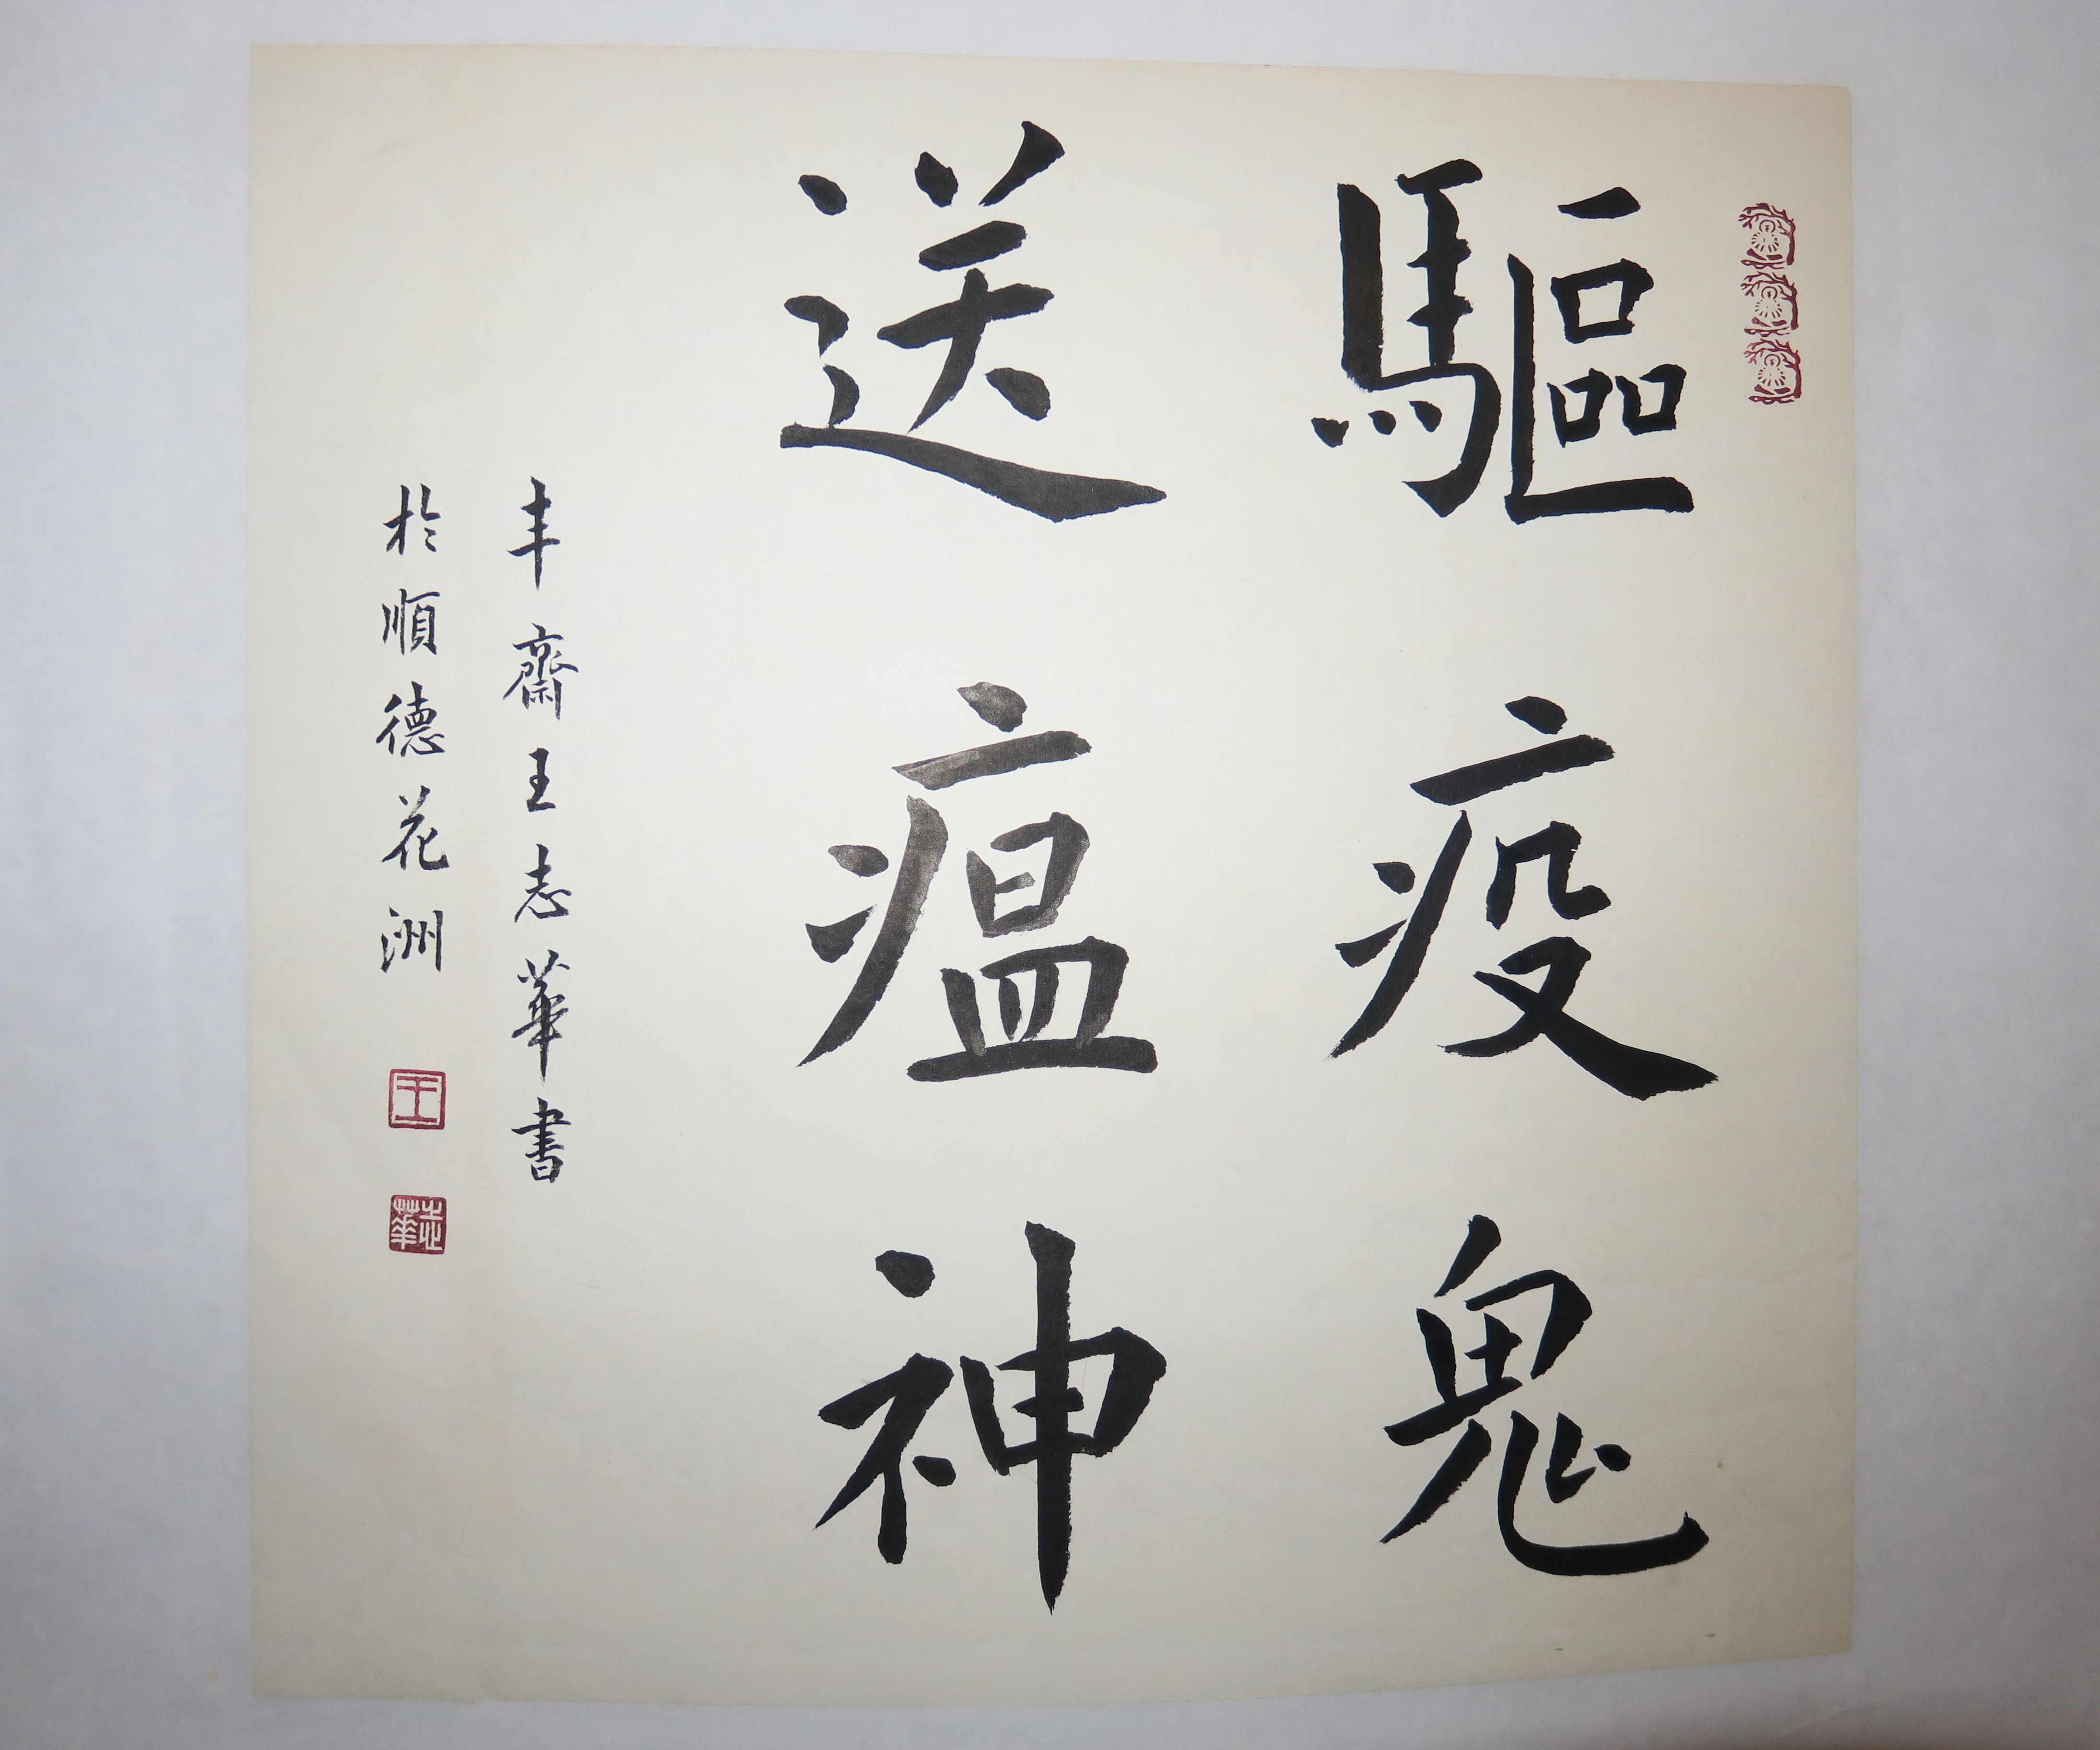 驅疫鬼
送瘟神
丰齋王志華書
於順德花洲
王
志華